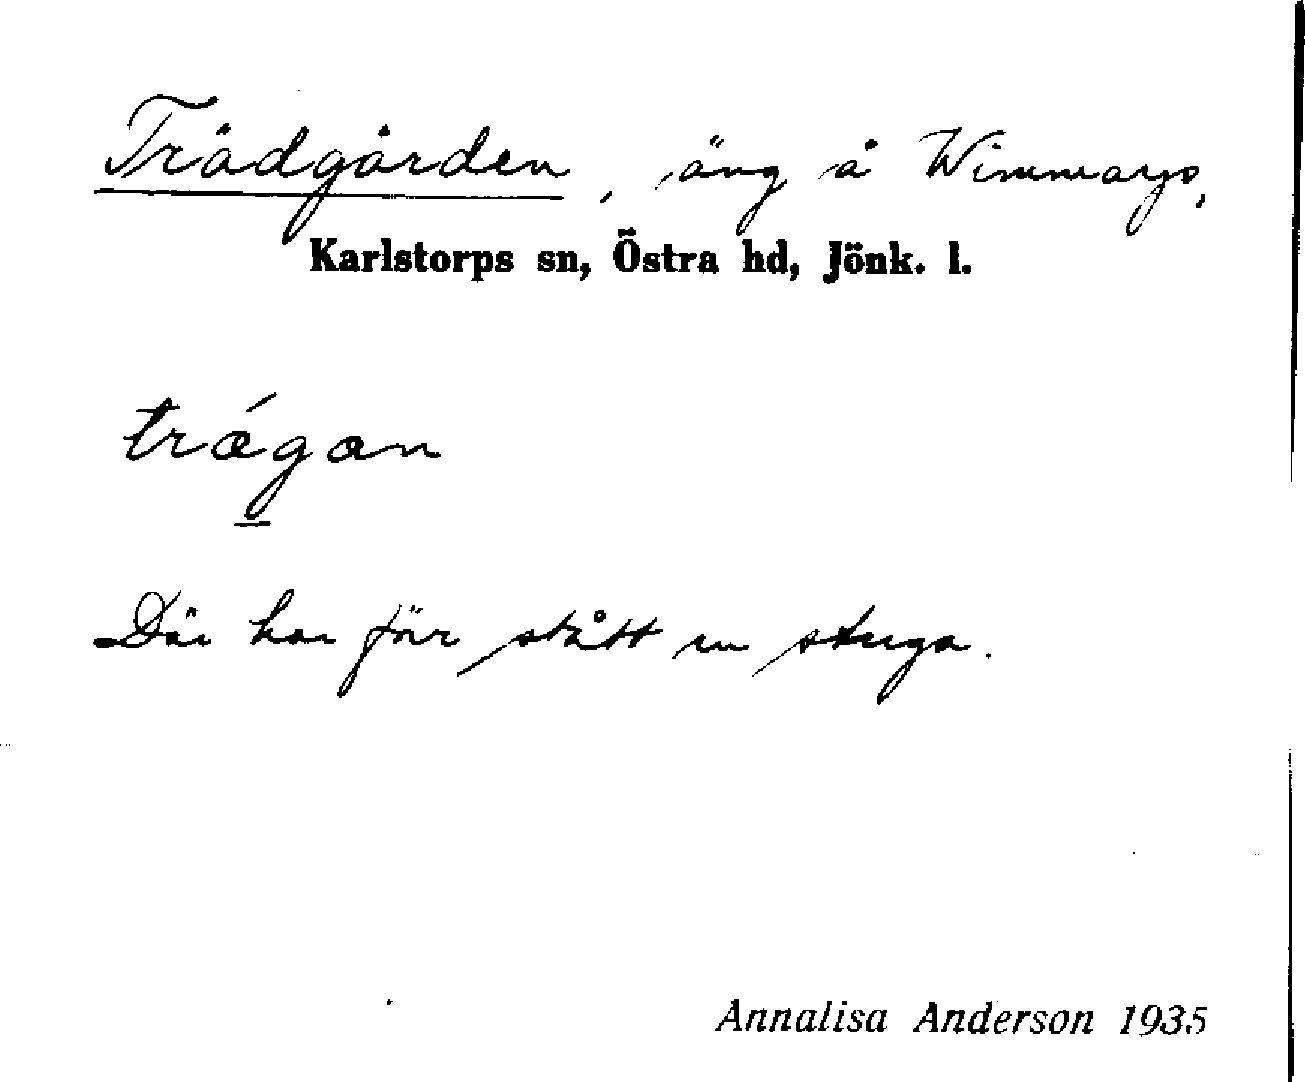 Trädgården, äng å Wimmarys,
Karlstorps sn, Östra hd, Jönk. l.
trǽgan
Där har för stått en stuga.
Annalisa Anderson 1935